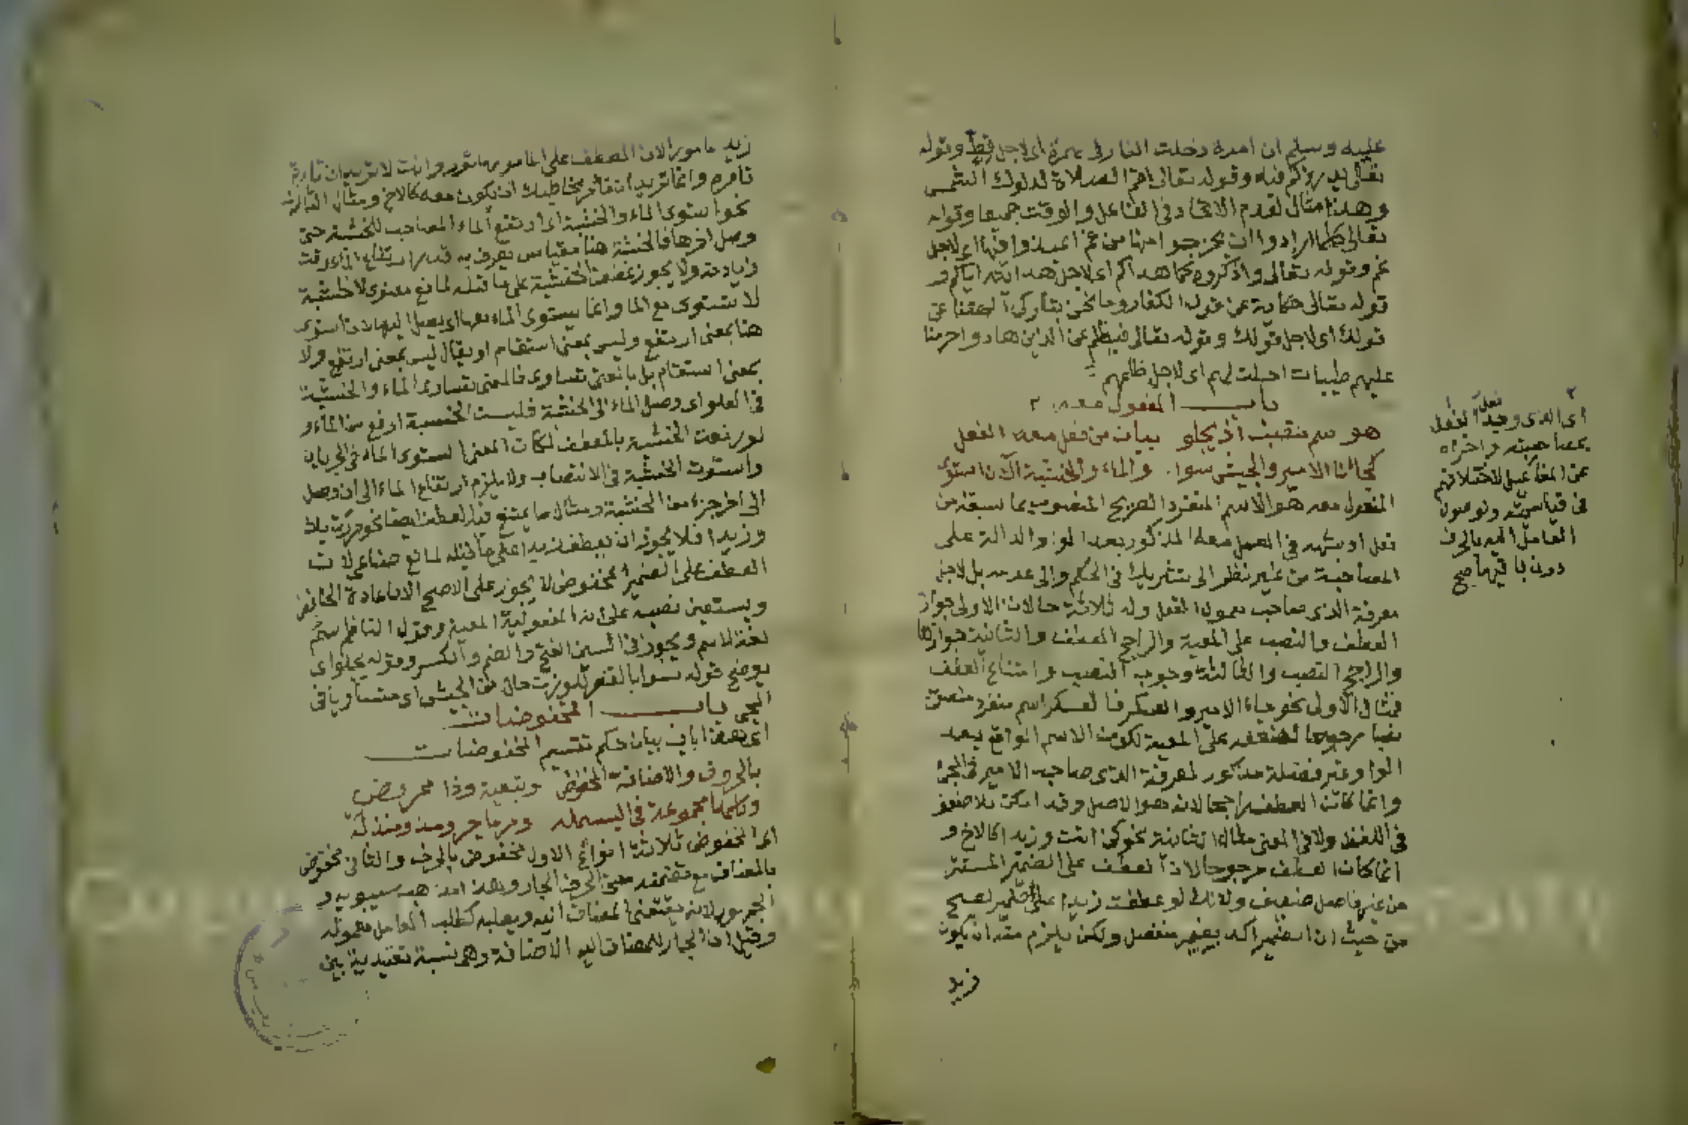 عليه وسلم ان امرة دخلت النار في هرة اي لاجل قط وقوله
تعالى وقوله تعالى اقم الصلاة لدلوك الشمس
وهذا مثال لعدم الاتحاد في الفاعل والوقت جميعا وقوله
تعالى كلما ارادوا ان يخرجوا منها من غم اعيدوا فيها اي لاجل
غم وقوله تعالى واذكروه كما هداكم اي لاجل هدايته اياكم و
قوله تعالى حكاية عن قول الكفار وما نحن بتاركي آلهتنا عن
قولك اي لاجل قولك وقوله تعالى فبظلم من الذين هادوا حرمنا
عليهم طيبات احلت لهم اي لاجل ظلمهم
باب المفعول معه
هو سم نصب اذ يجلو بيان من فعل معه الفعل
كجالنا الامير والجيش سوا والماء والخشبة الآن استوى
المفعول معه هو الاسم المنفرد الصريح المنصوب بما سبقه من
فعل او شبهه في العمل معه المذكور بعد الواو الدالة على
المصاحبة من غير نظر الى تشريك في الحكم والى عدمه بل لاجل
معرفة الذي صاحب معمول الفعل وله ثلاثة حالات الاولى جواز
العطف والنصب على المعية والراجح العطف والثانية جوازهما
والراجح النصب والثالثة وجوب النصب وامتناع العطف
فمثال الاولى نحو جاء الامير والعسكر فالعسكر اسم منفرد منصوب
نصبا مرجوحا لضعفه على المعية لكونه الاسم الواقع بعد
الواو غير فضلة مذكور لمعرفة الذي صاحب الامير في المجئ
وانما كان العطف راجحا لانه هو الاصل وقد امكن بلا ضعف
في اللفظ ولا في المعنى مثال الثانية نحو كن انت وزيدا كالاخ و
انما كان العطف مرجوحا لان العطف على الضمير المستتر
من غير فاصل ضعيف ولانك لو عطفت زيدا على الضمير لصح
من حيث ان الضمير اكد بضمير منفصل ولكن يلزم منه ان يكون
زيد
اي الذي وجد الفعل
بمصاحبته
في قياسيته ولوصول
العامل اليه بالحرف
دون باقيها صح
زيد مامورا لان المعطف على المامور مامور وانت لا تريد ان
تامره وانما تريد ان تامر مخاطبك ان يكون معه كالاخ ومثال الثالثة
نحو استوى الماء والخشبة اي ارتفع الماء المصاحب للخشبة حتى
وصل اخرها فالخشبة هنا مقياس يعرف به قدر ارتفاع الماء وقت
زيادته ولا يجوز عطف الخشبة على ما قبله لمانع معنوي لان الخشبة
لا تستوي مع الما وانما يستوي الماء معها اي يصل اليها لان استوى
هنا بمعنى ارتفع وليس بمعنى استقام او يقال ليس بمعنى ارتفع ولا
بمعنى استقام بل بمعنى تساوى فالمعنى تساوى الماء والخشبة
في العلو اي وصل الماء الى الخشبة فليست الخشبة ارفع من الماء و
لو رفعت الخشبة بالعطف لكان المعنى استوى الماء في الجريان
واستوت الخشبة في الانتصاب ولا يلزم ارتفاع الماء الى ان وصل
الى اخر جزء من الخشبة ومثال ما يمتنع فيه العطف ايضا نحو مررت بك
وزيدا فلا يجوز ان يعطف زيدا على ما قبله لمانع صناعي لان
العطف على الضمير المخفوض لا يجوز على الاصح الا باعادة الخافض
ويتعين نصبه على انه المفعولية المعية وقول الناظم سم
لغة لاسم ويجوز في السين الفتح والضم والكسر وقوله يجلو اي
يوضح قوله سوا بالقصر للوزن حال من الجيش اي مستاويا في
المجئ باب المخفوضات
اي هذا باب بيان حكم تقسيم المخفوضات
بالحروف والاضافة الخفوض وتبعية وذا مخفوض
وكلها مجموعة في البسملة
اي المخفوض ثلاثة انواع الاول مخفوض بالحرف والثاني مخفوض
بالمضاف مع تضمنه معنى الحرف الجار وهذا مذهب سيبويه و
الجمهور لانه يقتضي المضاف اليه ويطلبه كطلب العامل معموله
وقيل ان الجار للمضاف اليه الاضافة وهي نسبة تقييدية بين